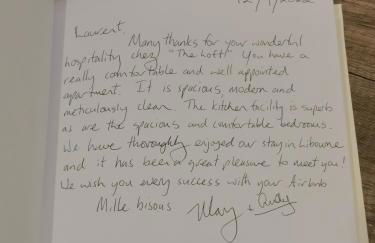 12/9/2022
Laurent,
Many thanks for your wonderful
hospitality chez "The Loft!" You have a
really comfortable and well appointed
apartment. It is spacious, modern and
meticulously clean. The kitchen facility is superb
as are the spacious and comfortable bedrooms.
We have thoroughly enjoyed our stay in Libourne
and it has been a great pleasure to meet you!
We wish you every success with your Airbnb
Mille bisous May +